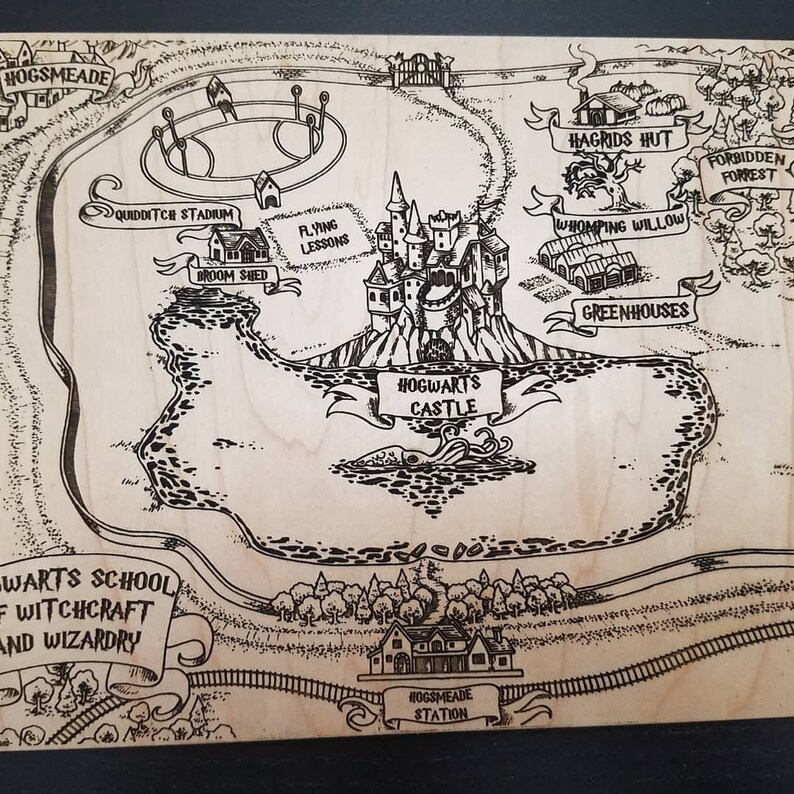 HOGSMEADE
HAGRIDS HUT
FORBIDDEN
FORREST
QUIDDITCH STADIUM
FLYING
LESSONS
WHOMPING WILLOW
BROOM SHED
GREENHOUSES
HOGWARTS
CASTLE
GWARTS SCHOOL
F WITCHCRAFT
AND WIZARDRY
HOGSMEADE
STATION